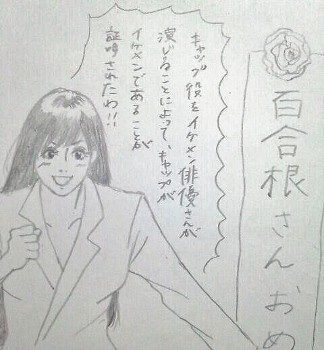 キャップ役をイケメン俳優さんが
演じることによって、キャップが
イケメンであることが
証明されたわ!!
百合根さんおめ